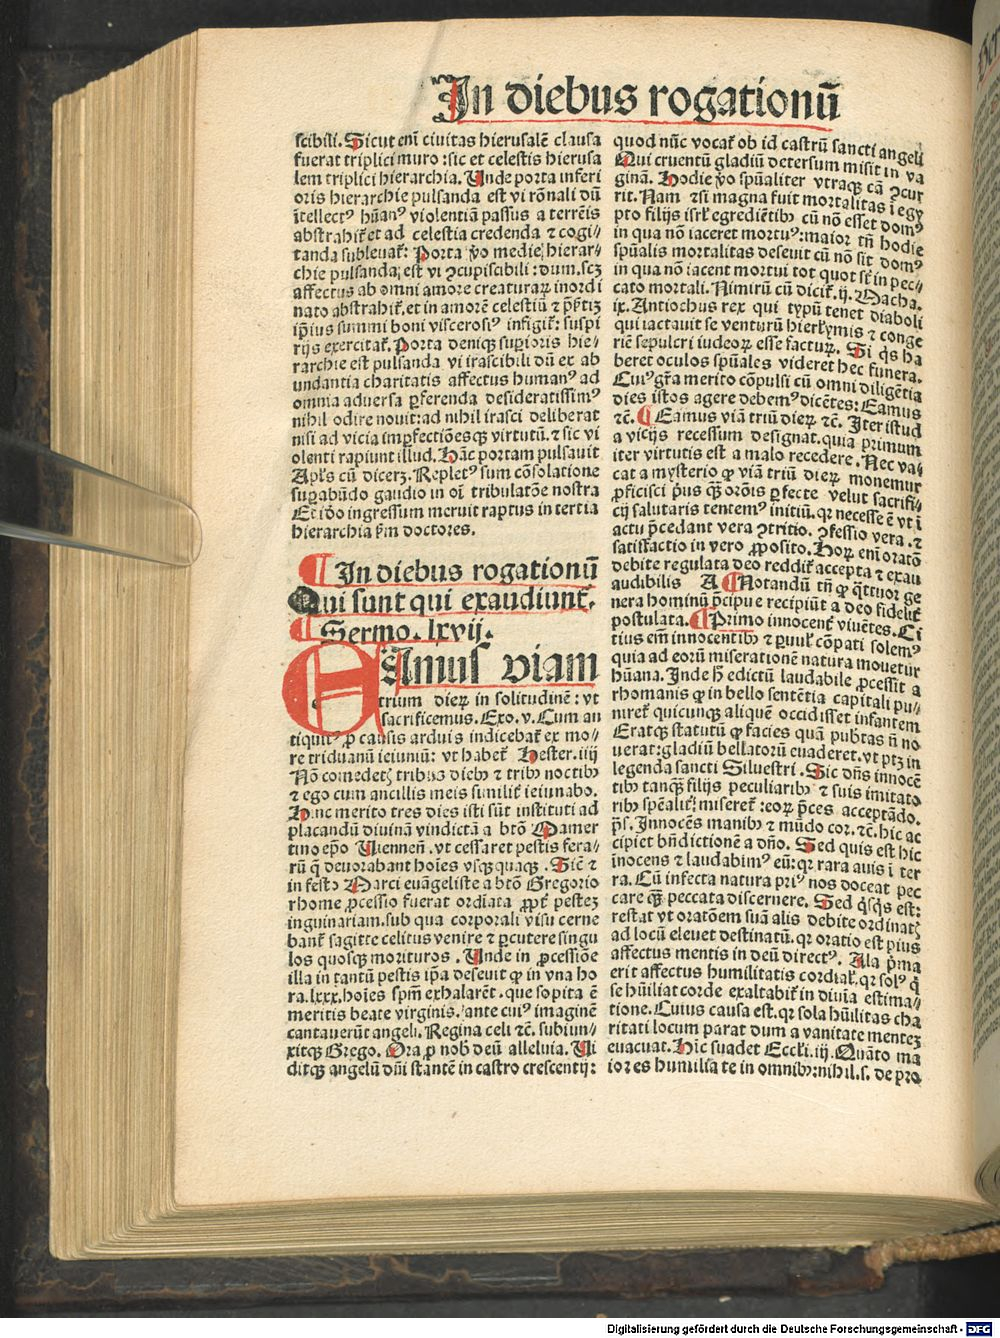 In diebus rogationū
scibili. Sicut eni ciuitas hierusalē clausa
fuerat triplici muro :sic et celestis hierusa
lem triplici hierarchia. Unde porta inferi
oris hierarchie pulsanda est vi rōnali dū
ītellectꝰ hūanꝰ violentiā passus a terrēis
abstrahit̄ et ad celestia credenda ⁊ cogi⸗
tanda subleuat̄: Porta ꝟo medie hierar⸗
chie pulsanda est vi ↄcupiscibili : dum. scꝫ
affectus ab omni amore creaturaꝝ inordi
nato abstrahit̄. et in amorē celestiū ⁊ p̄ptiꝫ
ip̄ius summi boni viscerosiꝰ infigit̄: suspi
rijs exercitat̄. Porta deniqꝫ suꝑioris hie⸗
rarchie est pulsanda vi irascibili dū ex ab
undantia charitatis affectus humanꝰ ad
omnia aduersa ꝑferenda desideratissimꝰ
nihil odire nouit: ad nihil irasci deliberat
nisi ad vicia imꝑfectiōesqꝫ virtutū. ⁊ sic vi
olenti rapiunt illud. Hāc portam pulsauit
Apl̄s cū dicerꝫ. Repletꝰ sum cōsolatione
suꝑabūdo gaudio in oī tribulatōe nostra
Et iō ingressum meruit raptus in tertia
hierarchia ẜm doctores.
¶ In diebus rogationū
Qui sunt qui exaudiunt̄.
¶ Sermo. lxvij.
EAmus viam
trium dieꝝ in solitudinē : vt
sacrificemus. Exo. v. Cum an
tiquitꝰ ꝓ causis arduis indicebat̄ ex mo⸗
re triduanū ieiuniū: vt habet̄ Hester. iiij
Nō comedetꝭ tribuꝫ diebꝫ ⁊ tribꝫ noctibꝫ
⁊ ego cum ancillis meis similit̄ ieiunabo.
Hinc merito tres dies isti sūt instituti ad
placandū diuinā vindictā a btō Mamer
tino ep̄o Uiennen̄. vt cessaret pestis fera⸗
rū q̄ deuorabant hoīes vsqꝫquaqꝫ. Sic̄ ⁊
in festo Marci euāgeliste a btō Gregorio
rhome ꝓcessio fuerat ordiata ꝓpt̄ pesteꝫ
inguinariam. sub qua corporali visu cerne
bant̄ sagitte celitus venire ⁊ ꝑcutere singu
los quosqꝫ morituros . Unde in ꝓcessiōe
illa in tantū pestis ip̄a deseuit ꝙ in vna ho
ra. lxxx. hoīes spm̄ exhalarēt. que sopita ē
meritis beate virginis. ante cuiꝰ imaginē
cantauerūt angeli. Regina celi ⁊c. subiun⸗
xitqꝫ Grego. Ora ꝓ nob̄ deū alleluia. Ui
ditqꝫ angelū dn̄i stantē in castro crescentij:
quod nūc vocat̄ ob id castrū sancti angeli
Qui cruentū gladiū detersum misit in va
ginā. Hodie ꝟo spūaliter vtraqꝫ cā ↄcur
rit. Nam ⁊si magna fuit mortalitas ī egy
pto filijs isrl̄ egrediētibꝫ cū nō esset domꝰ
in qua nō iaceret mortuꝰ: maior tn̄ hodie
spūalis mortalitas deseuit cū nō sit domꝰ
in qua nō iacent mortui tot quot st̄ in pec⸗
cato mortali. Nimirū cū dicit̄. ij. Macha.
ix. Antiochus rex qui typū tenet diaboli
qui iactauit se venturū hierl̄ymis ⁊ conge
riē sepulcri iudeoꝝ esse facturꝝ. Si q̄s ha
beret oculos spūales videret hec funera.
Cuiꝰ gr̄a merito cōpulsi cū omni diligētia
dies istos agere debemꝰ dicētes: Eamus
⁊c. ¶ Eamus viā triū dieꝝ ⁊c. Iter istud
a vicijs recessum designat. quia primum
iter virtutis est a malo recedere. Nec va⸗
cat a mysterio ꝙ viā triū dieꝝ monemur
ꝓficisci p̄us qꝫ orōis ꝑfecte velut sacrifi⸗
cij salutaris tentemꝰ initiū. qꝛ necesse ē vt ī
actu p̄cedant vera ↄtritio. ↄfessio vera. ⁊
satisfactio in vero ꝓposito. Hoꝝ eni oratō
debite regulata deo reddit̄ accepta ⁊ exau
audibilis A ¶ Notandū tn̄ ꝙ q̄ttuor ge
nera hominū p̄cipue recipiūt a deo fidelit̄
postulata. ¶ Primo innocent̄ viuētes. Ci
tius em̄ innocentibꝫ ⁊ ꝑuul̄ cōpati solemꝰ
quia ad eorū miserationē natura mouetur
hūana. Inde h̄ edictū laudabile ꝓcessit a
rhomanis ꝙ in bello sentētia capitali pu⸗
niret̄ quicunqꝫ aliquē occidisset infantem
Eratqꝫ statutū ꝙ facies quā pubtas n̄ no
uerat: gladiū bellatorū euaderet. vt ptꝫ in
legenda sancti Siluestri . Sic dn̄s innocē
tibꝫ tanqꝫ filijs peculiaribꝫ ⁊ suis imitato
ribꝫ spēalit̄ miseret̄ : eoꝝ p̄ces acceptādo.
p̄s. Innocēs manibꝫ ⁊ mūdo cor. ⁊c. hic ac
cipiet bn̄dictionē a dn̄o. Sed quis est hic
īnocens ⁊ laudabimꝰ eū: qꝛ rara auis ī ter
ra. Cū infecta natura priꝰ nos doceat pec
care qꝫ peccata discernere. Sed q̄sq̄s est:
restat vt oratōem suā alis debite ordinatꝭ
ad locū eleuet destinatū. qꝛ oratio est pius
affectus mentis in deū directꝰ. Ala p̄ma
erit affectus humilitatis cordial̄. qꝛ solꝰ q̄
se hūiliat corde exaltabit̄ in diuīa estima⸗
tione. Cuius causa est. qꝛ sola hūilitas cha
ritati locum parat dum a vanitate menteꝫ
euacuat. Hīc suadet Eccl̄i. iij. Quāto ma
ior es humilia te in omnibꝫ: nihil. s. de pro
Digitalisierung gefördert durch die Deutsche Forschungsgemeinschaft - DFG